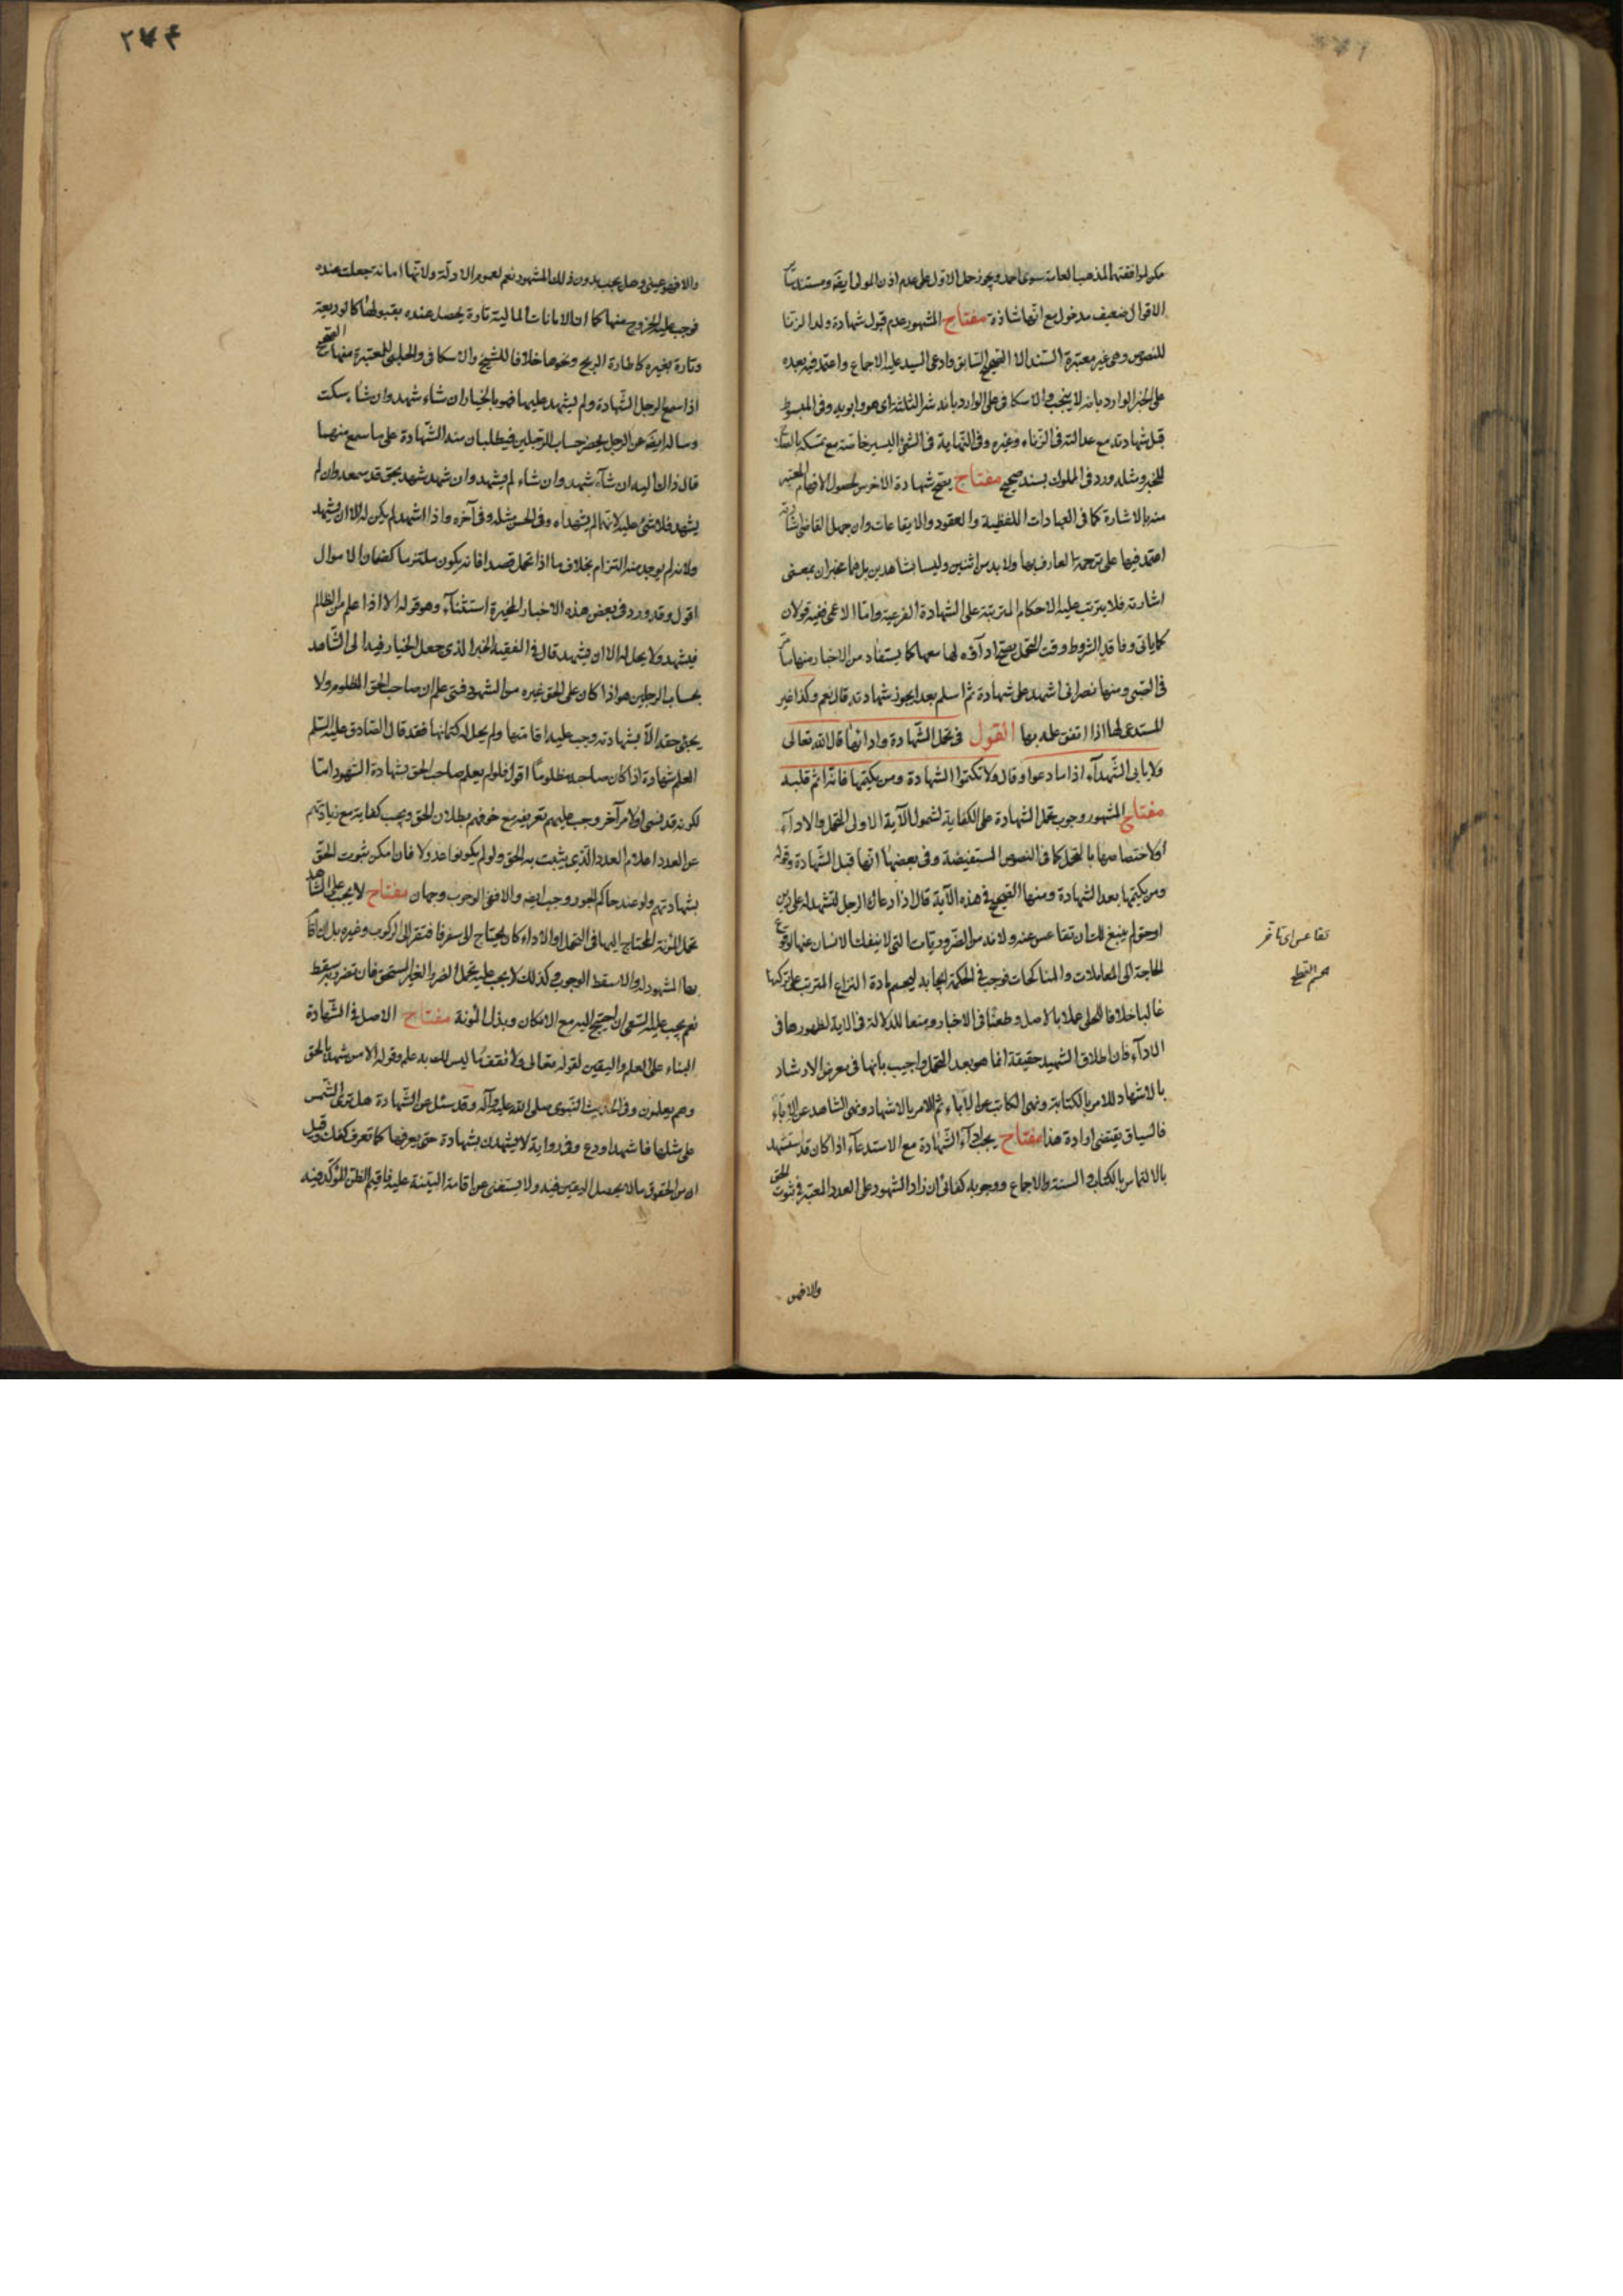 لموافقتها لمذهب العامة سوى احمد ويجوز حمل الاول على عدم اذن المولى ايضا ومستند باقى
الاقوال ضعيف مدخول مع انها شاذة مفتاح المشهور عدم قبول شهادة ولد الزنا
للنصوص وهى غير معتبرة السند الا الصحيح السابق وادعى السيد عليه الاجماع واعتمد فيه بعده
على الخبر الوارد بانه لا ينجب والاسكافى على الوارد بانه شر الثلثة اى هو وابويه وفى المبسوط
قبل شهادته مع عدالته فى الزناء وغيره وفى النهاية فى الشئ اليسير خاصة مع تمسكه بالصلاح
للخبر ومثله ورد فى المملوك بسند صحيح مفتاح يصح شهادة الاخرس لحصول الافهام المعتبر
منه بالاشارة كما فى العبادات اللفظية والعقود والايقاعات وان جهل القاضى اشارته
اعتمد فيها على ترجمة العارف بها ولا بد من اثنين وليسا بشاهدين بل هما مخبران بمعنى
اشارته فلا يترتب عليه الاحكام المترتبة على الشهادة الفرعية واما الاعمى ففيه قولان
كما ياتى وفاقد الشروط وقت التحمل يصح اداؤه لها معها كما يستفاد من الاخبار منها ما مر
فى الصبى ومنها نصرانى اشهد على شهادة ثم اسلم بعد ايجوز شهادته قال نعم وكذا غير
المستدعى لها اذا اتفق علمه بها القول فى تحمل الشهادة وادائها قال الله تعالى
ولا يابى الشهدآء اذا ما دعوا وقال ولا تكتموا الشهادة ومن يكتمها فانه اثم قلبه
مفتاح المشهور وجوب تحمل الشهادة على الكفاية لشمول الآية الاولى التحمل والادآء
او لاختصاصها بالتحمل كما فى النصوص المستفيضة وفى بعضها انها قبل الشهادة وقوله
ومن يكتمها بعد الشهادة ومنها الصحيح فى هذه الآية قال اذا دعاك الرجل لتشهد له على دين
او حق لم ينبغ لك ان تقاعس عنه ولانه من الضروريات التى لا ينفك الانسان عنها لوقوع
الحاجة الى المعاملات والمناكحات فوجب فى الحكمة ايجابه ليحسم مادة النزاع المترتب على تركها
غالبا خلافا للحلى عملا بالاصل وطعنا فى الاخبار ومنعا للدلالة فى الاية لظهورها فى
الادآء فان اطلاق الشهيد حقيقة انما هو بعد التحمل واجيب بانها فى معرض الارشاد
بالاشهاد للامر بالكتابة ونهى الكاتب عن الاباء ثم الامر بالاشهاد ونهى الشاهد عن الاباء
فالسياق يقتضى ارادة هذا مفتاح يجب ادآء الشهادة مع الاستدعآء اذا كان قد استشهد
بالالتماس بالكتاب والسنة والاجماع ووجوبه كفائى ان زاد الشهود على العدد المعتبر فى ثبوت الحق
تقاعس اى تاخر
حسم القطع
والافهو
٢٧٤
والا فهو عينى وهل يجب بدون ذلك المشهور نعم لعموم الادلة ولانها امانة جعلت عنده
فوجب عليه الخروج منها كما ان الامانات المالية تارة يحصل عنده بقبولها كالوديعة
وتارة بغيره كاطارة الريح ونحوها خلافا للشيخ والاسكافى والحلبى للمعتبرة منها الصحيح
اذا سمع الرجل الشهادة ولم يشهد عليها فهو بالخيار ان شاء شهد وان شاء سكت
وساله ايضا عن الرجل يحضر حساب الرجلين فيطلبان منه الشهادة على ما سمع منهما
قال ذلك اليه ان شآء شهد وان شاء لم يشهد وان شهد شهد بحق قد سمعه وان لم
يشهد فلا شئ عليه لانهما لم يشهداه وفى الحسن مثله وفى آخره واذا اشهد لم يكن له الا ان يشهد
ولانه لم يوجد منه التزام بخلاف ما اذا تحمل قصدا فانه يكون ملتزما كضمان الاموال
اقول وقد ورد فى بعض هذه الاخبار المخيرة استثنآء وهو قوله الا اذا علم من الظالم
فيشهد ولا يحل له الا ان يشهد قال فى الفقيه الخبر الذى جعل الخيار فيه الى الشاهد
بحساب الرجلين هو اذا كان على الحق غيره من الشهود فمتى علم ان صاحب الحق المظلوم ولا
يحيى حقه الا بشهادته وجب عليه اقامتها ولم يحل له كتمانها فقد قال الصادق عليه السلم
العلم شهادة اذا كان صاحبه مظلوما اقول فلو لم يعلم صاحب الحق بشهادة الشهود اما
لكونه قد نسى او لامر آخر وجب عليهم تعريفه مع خوفهم بطلان الحق ويجب كفاية مع زيادتهم
عن العدد اعلام العدد الذى يثبت به الحق ولو لم يكونوا عدولا فان امكن ثبوت الحق
بشهادتهم ولو عند حاكم الجور وجب ايضه والا ففى الوجوب وجهان مفتاح لا يجب على الشاهد
تحمل المؤنة المحتاج اليها فى التحمل او الاداء كان يحتاج الى سفر فافتقر الى الركوب وغيره بل ان قام
بها المشهود له والا سقط الوجوب وكذلك لا يجب عليه تحمل الضرر الغير المستحق فان تضرر به سقط
نعم يجب عليه السعى ان احتيج اليه مع الامكان وبذل المؤنة مفتاح الاصل فى الشهادة
البناء على العلم واليقين لقوله تعالى ولا تقف ما ليس لك به علم وقوله الا من شهد بالحق
وهم يعلمون وفى الحديث النبوى صلى الله عليه وآله وقد سئل عن الشهادة هل ترى الشمس
على مثلها فاشهد او دع وفى رواية لا يشهدن بشهادة حتى يعرفها كما تعرف كفك وقيل
ان من الحقوق ما لا يحصل اليقين فيه ولا يستغنى عن اقامة البينة عليه فاقيم الظن المؤكد فيه